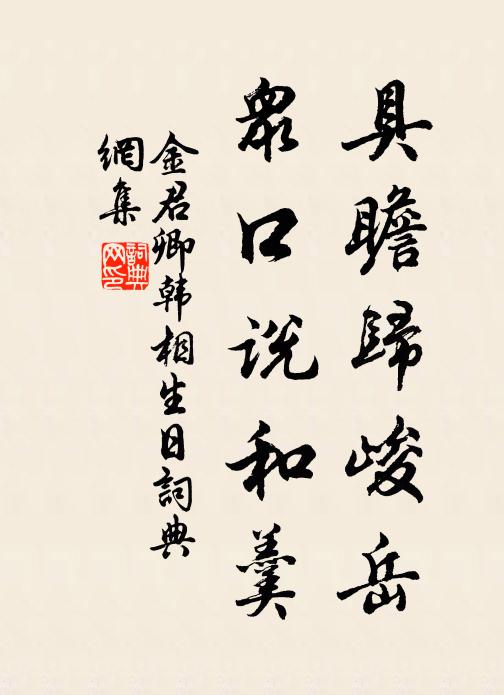 具瞻歸峻岳
眾口說和羹
金君卿韩相生日詞典
網集
詞典
网印